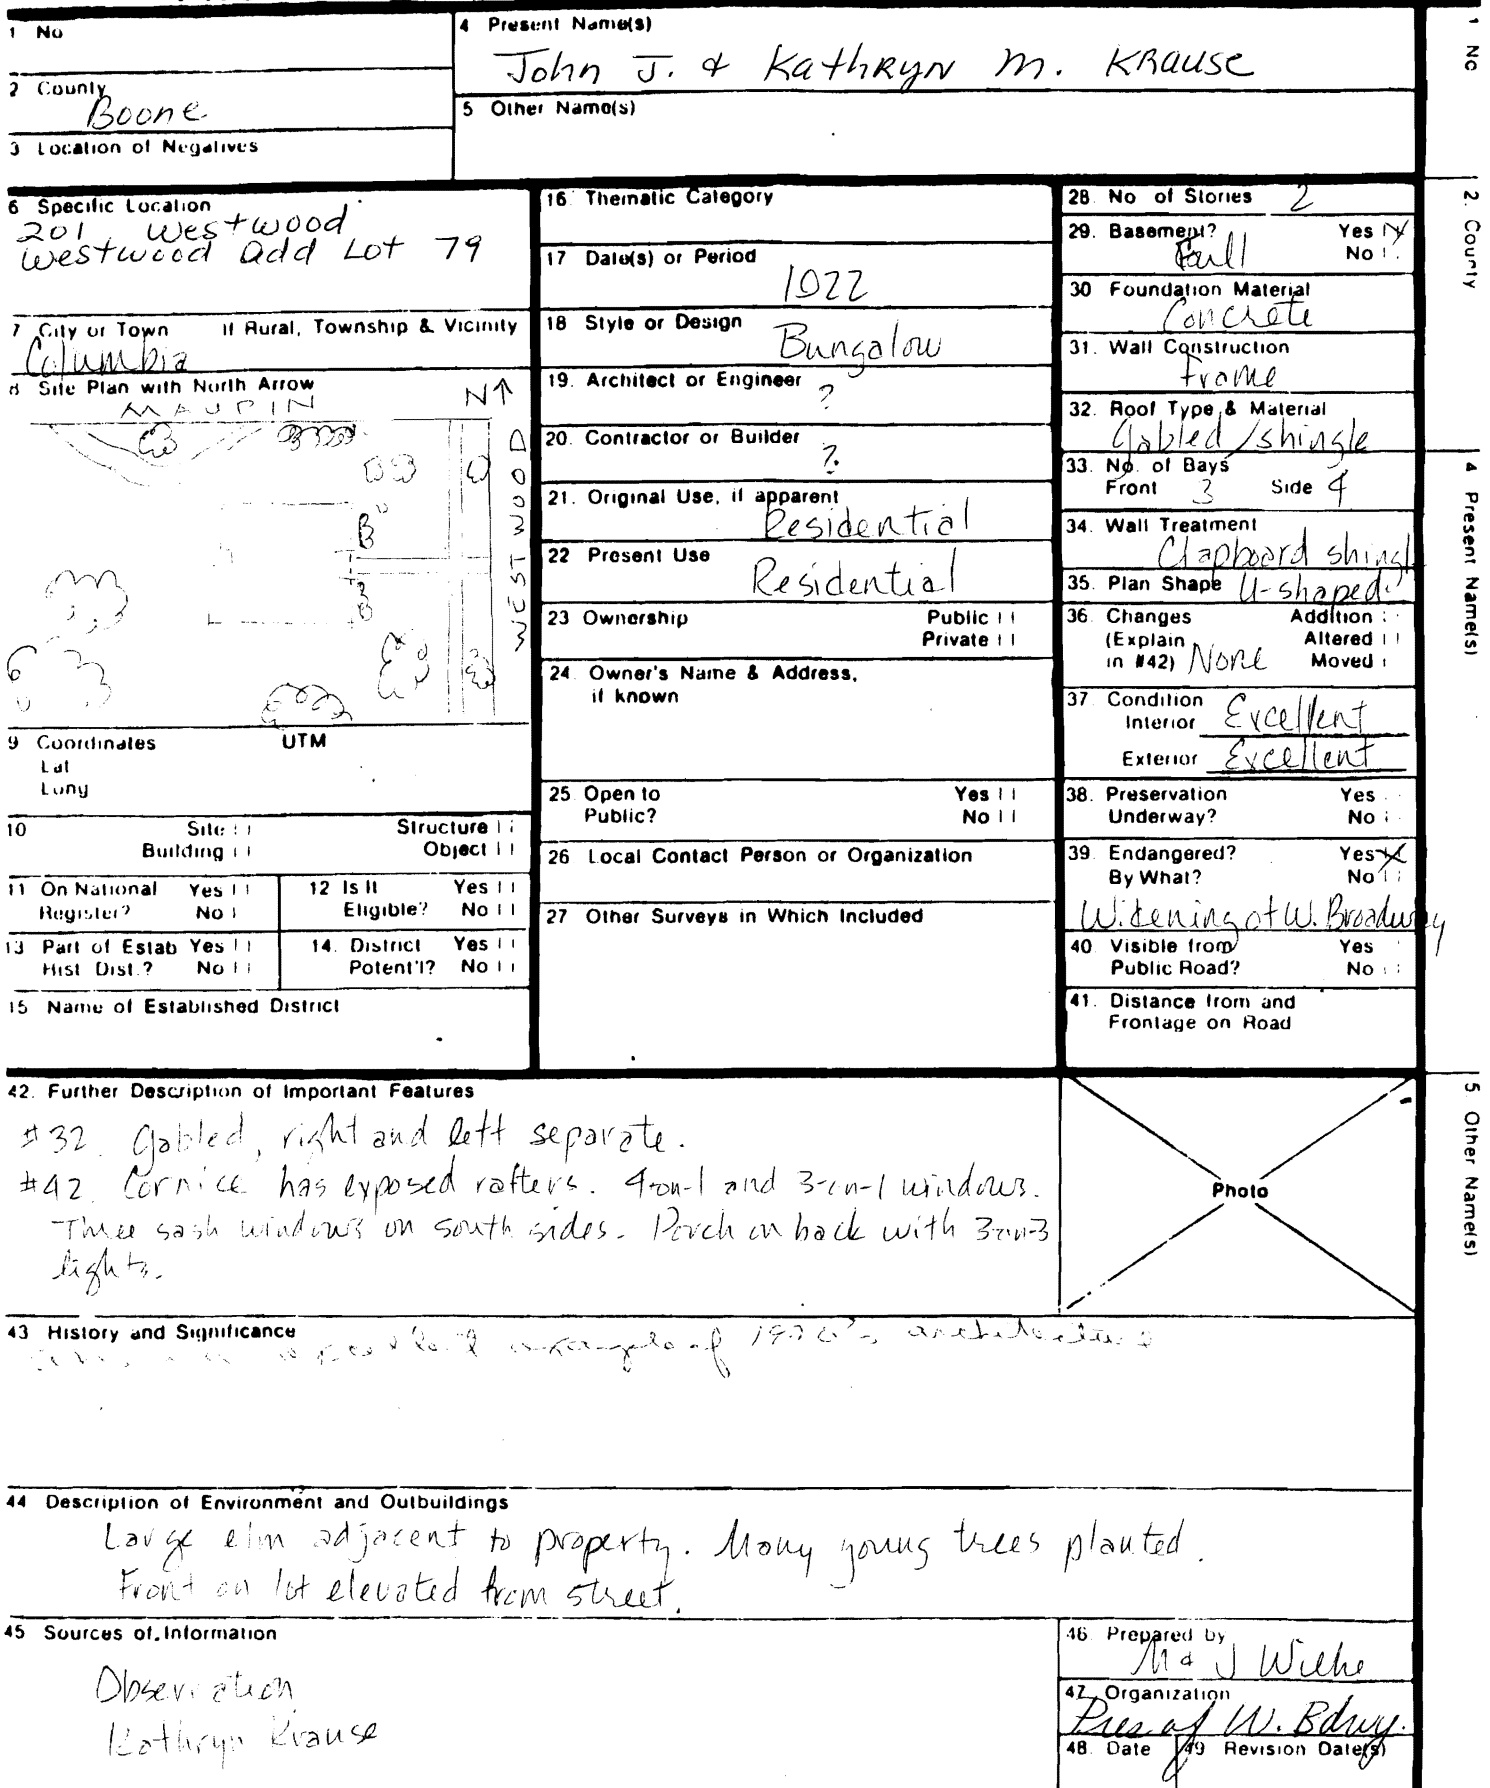 1 No
4 Present Name(s)
John J. & Kathryn M. Krause
2 County
Boone
5 Other Name(s)
3 Location of Negatives
6 Specific Location
201 Westwood
Westwood Add Lot 79
7 City or Town If Rural, Township & Vicinity
Columbia
8 Site Plan with North Arrow
N↑
MAUPIN
WESTWOOD
9 Coordinates UTM
Lat
Long
10 Site Structure
Building Object
11 On National Register? Yes No
12 Is It Eligible? Yes No
13 Part of Estab Hist Dist.? Yes No
14. District Potent'l? Yes No
15 Name of Established District
16 Thematic Category
17 Date(s) or Period
1922
18 Style or Design
Bungalow
19. Architect or Engineer
?
20. Contractor or Builder
?
21. Original Use, if apparent
Residential
22 Present Use
Residential
23 Ownership Public
Private
24 Owner's Name & Address,
if known
25 Open to Yes
Public? No
26 Local Contact Person or Organization
27 Other Surveys in Which Included
28 No of Stories 2
29. Basement? Yes X
Full No
30 Foundation Material
Concrete
31. Wall Construction
frame
32. Roof Type & Material
Gabled / shingle
33. No. of Bays
Front 3 Side 4
34. Wall Treatment
Clapboard shingl
35. Plan Shape U-shaped
36. Changes Addition
(Explain Altered
in #42) None Moved
37 Condition
Interior Excellent
Exterior Excellent
38. Preservation Yes
Underway? No
39 Endangered? Yes X
By What? No
Widening of W. Broadway
40. Visible from Yes
Public Road? No
41. Distance from and
Frontage on Road
42. Further Description of Important Features
#32 Gabled, right and left separate.
#42 Cornice has exposed rafters. 4-on-1 and 3-on-1 windows.
Three sash windows on south sides. Porch on back with 3-on-3
lights.
Photo
43 History and Significance
example of 1920's architecture
44 Description of Environment and Outbuildings
Large elm adjacent to property. Many young trees planted.
Front on lot elevated from street.
45 Sources of Information
Observation
Kathryn Krause
46. Prepared by
M & J Wilke
47. Organization
Pres. of W. Bdwy.
48. Date 49 Revision Date(s)
1 No
2. County
4 Present Name(s)
5 Other Name(s)